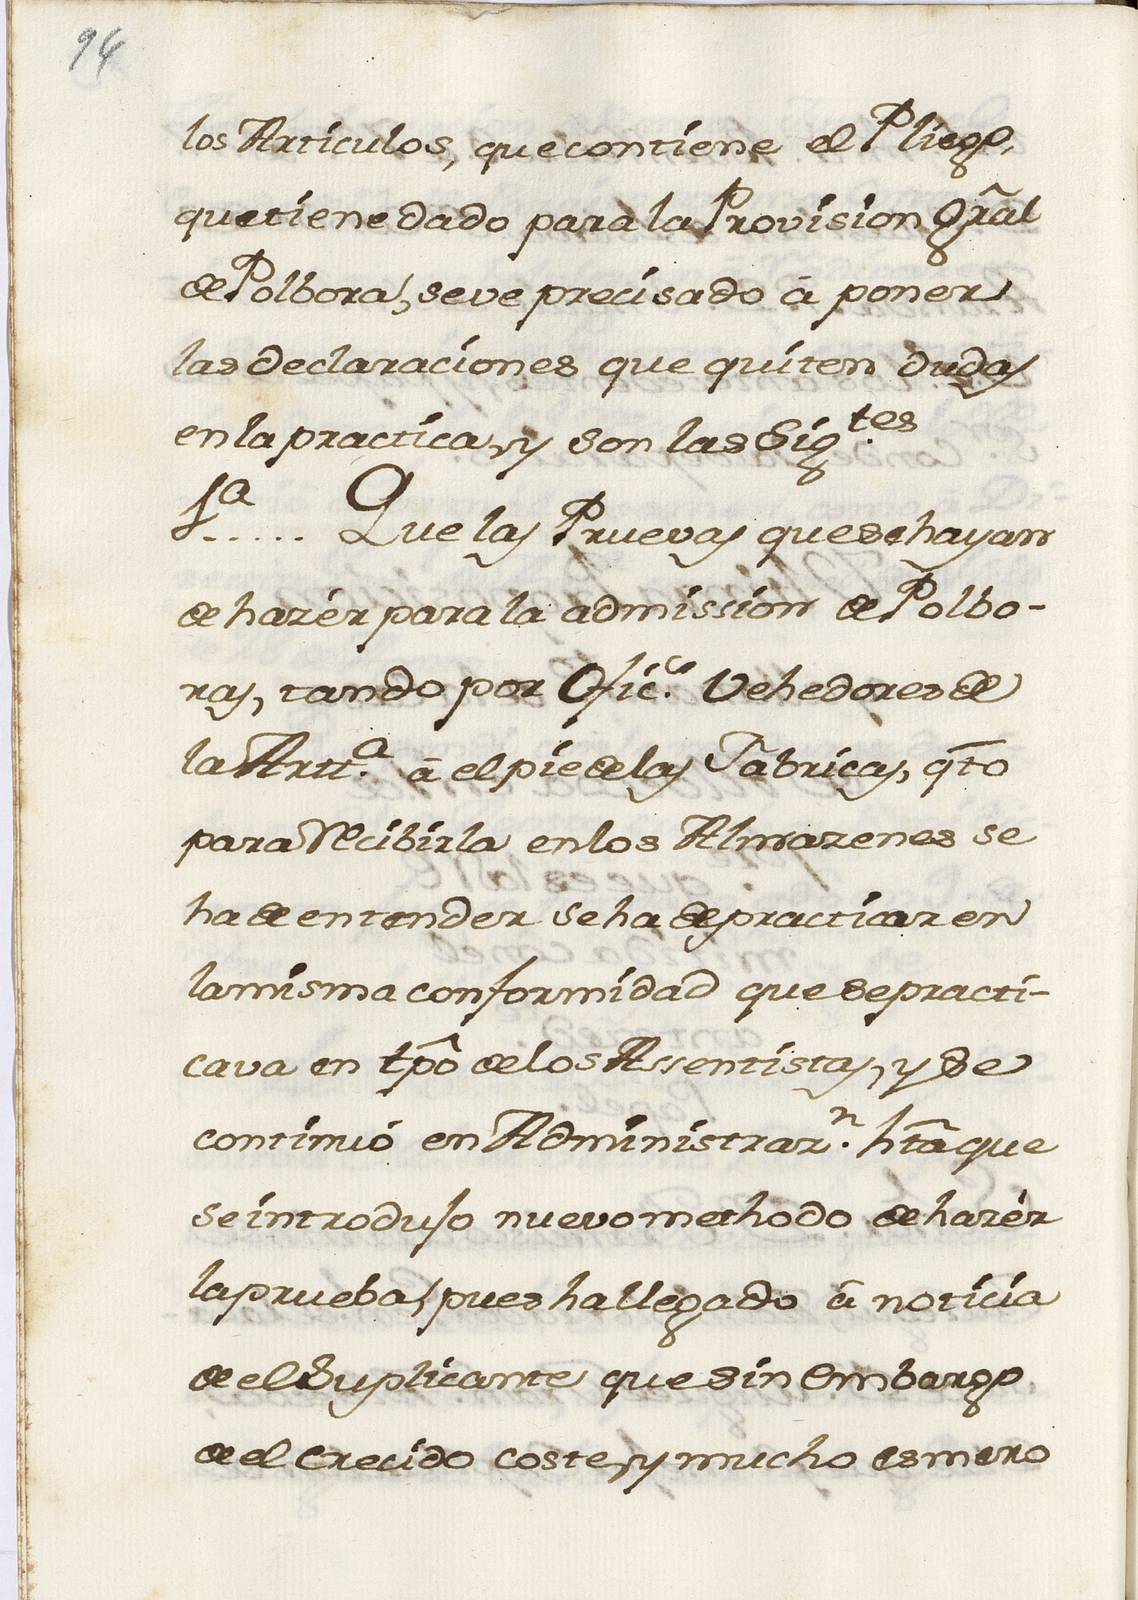 94
los Artículos, que contiene el Pliego,
que tiene dado para la Provision Grãl
de Polbora, se ve precisado â poner
las declaraciones que quiten dudas
en la practica, y son las Sig.tes
1.a ..... Que las Pruevas que se hayan
de hazér para la admission de Polbo-
ras, tando por Ofic.s Vehedores de
la Artt.a â el pie de las Fabricas, q̃to
para Recibirla en los Almazenes se
ha de entender se ha de practicar en
la misma conformidad que se practi-
cava en tp̂o de los Assentistas, y se
continuó en Administraz.n hta que
se introdujo nuevo methodo de hazér
la prueba, pues ha llegado â noticia
de el Suplicante que sin embargo
de el crecido coste, y mucho esmero